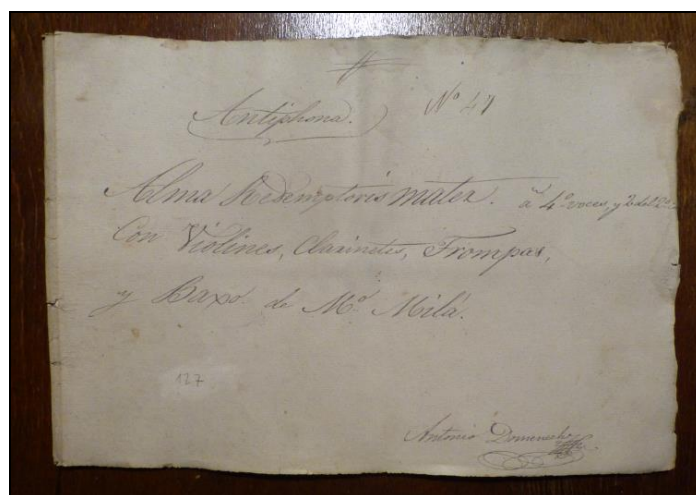 Antiphona. Nº 47
Alma Redemptoris mater. a 4º voces, y
Con Violines, Clarinetes, Trompas,
y Baxo. de Mº Milá.
127
Antonio Domenech